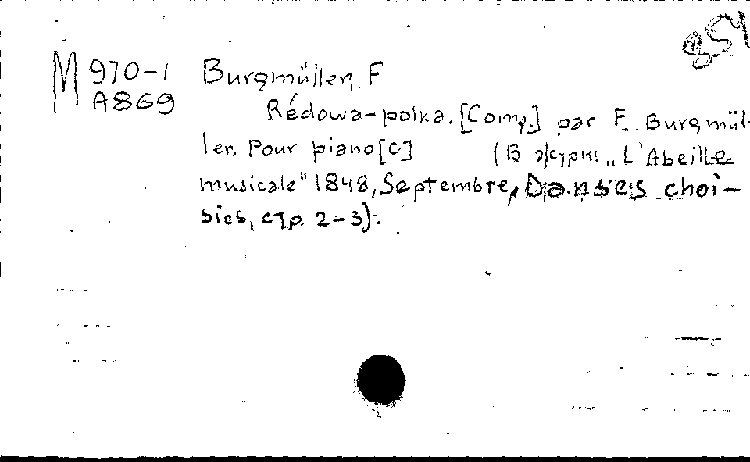 854
M 970-1
A869
Burgmüller, F
Rédowa-polka. [Comp.] par F. Burgmül-
ler. Pour piano [C] (В журн. „L'Abeille
musicale" 1848, Septembre, Danses choi-
sies, стр. 2-3).